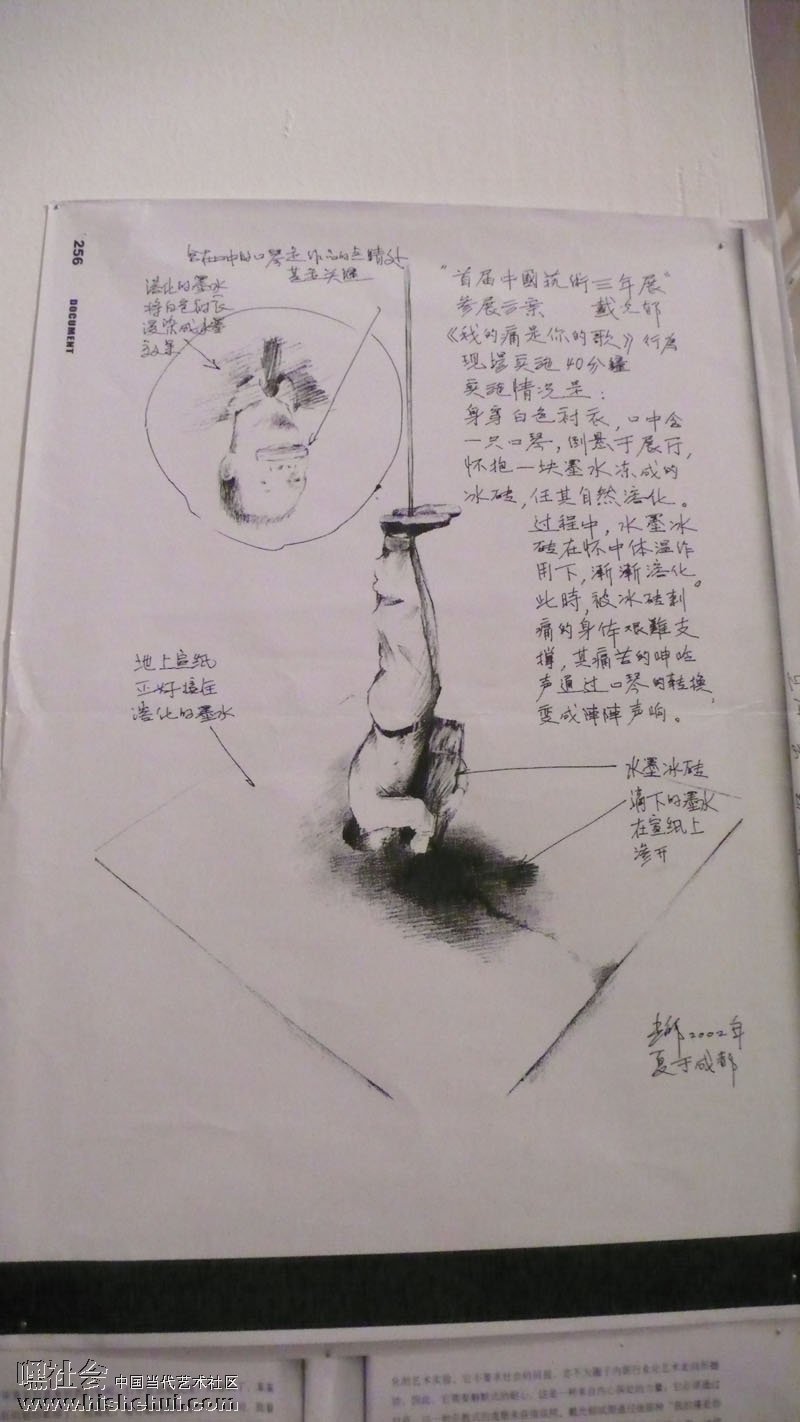 256 DOCUMENT
含在口中的口琴是作品的点睛处
甚至关键
溶化的墨水
将白色衬衣
浸染成水墨
效果
“首届中國艺術三年展”
参展方案 戴光郁
《我的痛是你的歌》行为
现場实施40分鐘
实施情况是：
身穿白色衬衣，口中含
一只口琴，倒悬于展厅，
怀抱一块墨水冻成的
冰砖，任其自然溶化。
过程中，水墨冰
砖在怀中体温作
用下，渐渐溶化。
此時，被冰砖刺
痛的身体艰難支
撑，其痛苦的呻吟
声通过口琴的转换，
变成陣陣声响。
地上宣纸
正好接住
溶化的墨水
水墨冰砖
滴下的墨水
在宣纸上
渗开
2002年
夏于成都
嘿社会 中国当代艺术社区
www.hishehui.com